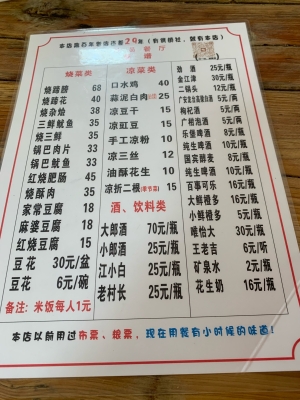 烧菜类
烧蹄膀 68
烧蹄花 40
烧杂烩 38
三鲜鱿鱼 35
烧三鲜 35
锅巴肉片 35
锅巴鱿鱼 35
红烧肥肠 45
烧酥肉 35
家常豆腐 18
麻婆豆腐 18
红烧豆腐 15
豆花 30元/盆
豆花 6元/碗
备注：米饭每人1元
凉菜类
口水鸡 40
蒜泥白肉 25
凉豆干 15
凉豇豆 15
手工凉粉 10
凉三丝 12
油酥花生 10
凉折二根(季节菜) 15
酒、饮料类
大郎酒 70元/瓶
小郎酒 25元/瓶
江小白 25元/瓶
老村长 25元/瓶
劲酒 25元/瓶
金江津 30元/瓶
二锅头 12元/瓶
枸杞酒
广柑泡酒
乐堡啤酒
纯生啤酒
国宾醇麦 8元/瓶
纯生啤酒 10元/瓶
百事可乐 16元/瓶
大鲜橙多 16元/瓶
小鲜橙多 5元/瓶
唯怡大 30元/瓶
王老吉 6元/听
矿泉水 2元/瓶
花生奶 16元/瓶
本店以前用过布票、粮票，现在用餐有小时候的味道！